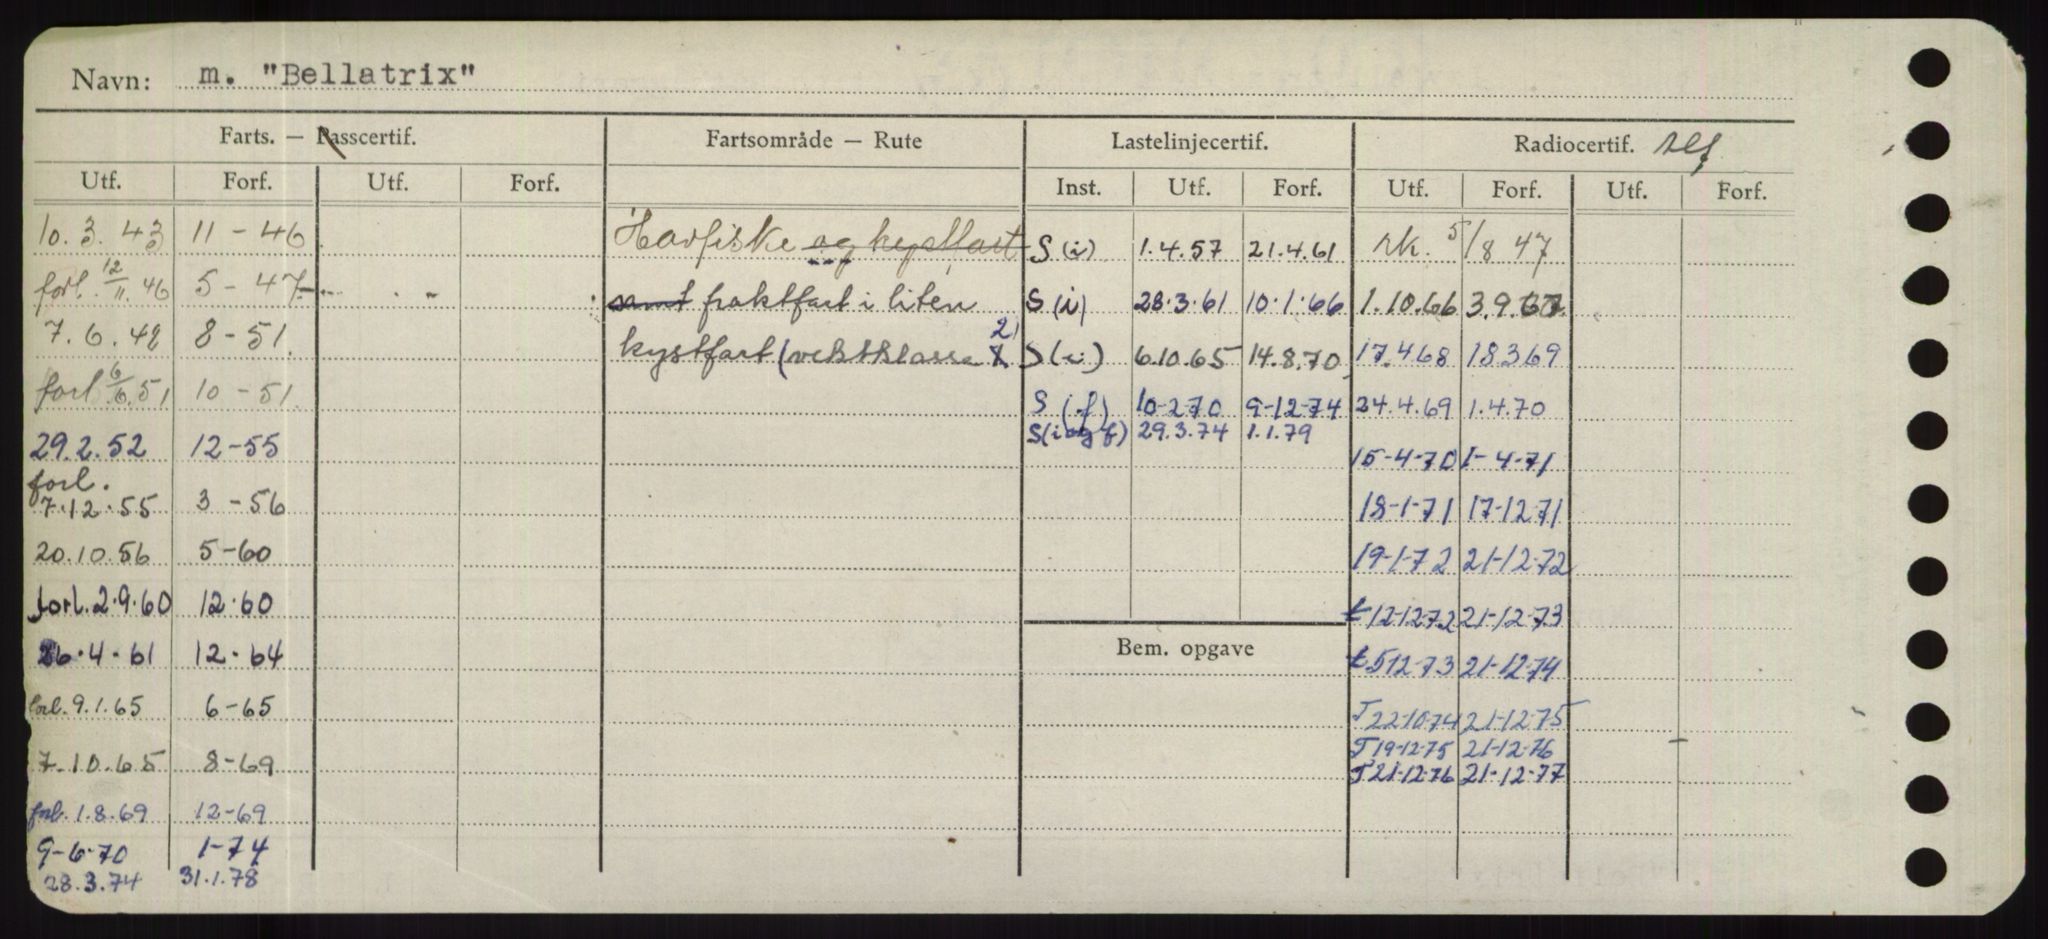 Navn: m. "Bellatrix"
Farts. — Passcertif. Fartsområde — Rute Lastelinjecertif. Radiocertif.
Utf. Forf. Utf. Forf. Inst. Utf. Forf. Utf. Forf. Utf. Forf.
10.3.43 11-46 Havfiske og kystfart S (i) 1.4.57 21.4.61 rk. 5/8 47
forl. 12/11.46 5-47 samt fraktfart i liten S (i) 28.3.61 10.1.66 1.10.66 3.9.67
7.6.48 8-51 kystfart (vektklasse 2) S (i) 6.10.65 14.8.70 17.4.68 18.3.69
forl 6/6.51 10-51 S (f) 10-2.70 9-12-74 24.4.69 1.4.70
S (i og f) 29.3.74 1.1.79
29.2.52 12-55 15-4-70 1-4-71
forl.
7.12.55 3-56 18-1-71 17-12-71
20.10.56 5-60 19-1-72 21-12-72
forl. 2.9.60 12.60 t 12-12-72 21-12-73
26.4.61 12.64 Bem. opgave t 5-12-73 21-12-74
forl. 9.1.65 6-65 T 22-10-74 21-12-75
7.10.65 8-69 T 19-12-75 21-12-76
T 21-12-76 21-12-77
forl. 1.8.69 12-69
9-6-70 1-74
28.3.74 31.1.78